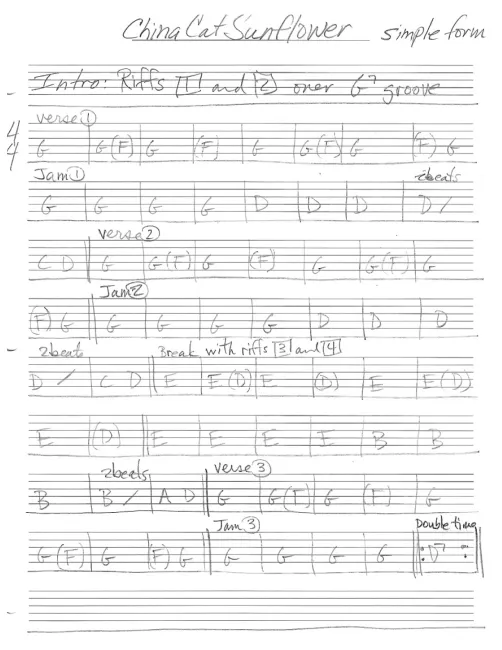 China Cat Sunflower simple form
Intro: Riffs 1 and 2 over G7 groove
verse 1
4/4 G G(F) G (F) G G(F) G (F) G
Jam 1 2beats
G G G G D D D D /
verse 2
C D G G(F) G (F) G G(F) G
Jam 2
(F) G G G G G D D D
2beats Break with riffs 3 and 4
D / C D E E(D) E (D) E E(D)
E (D) E E E E B B
2beats verse 3
B B / A D G G(F) G (F) G
Jam 3 Double time
G(F) G (F) G G G G G D7